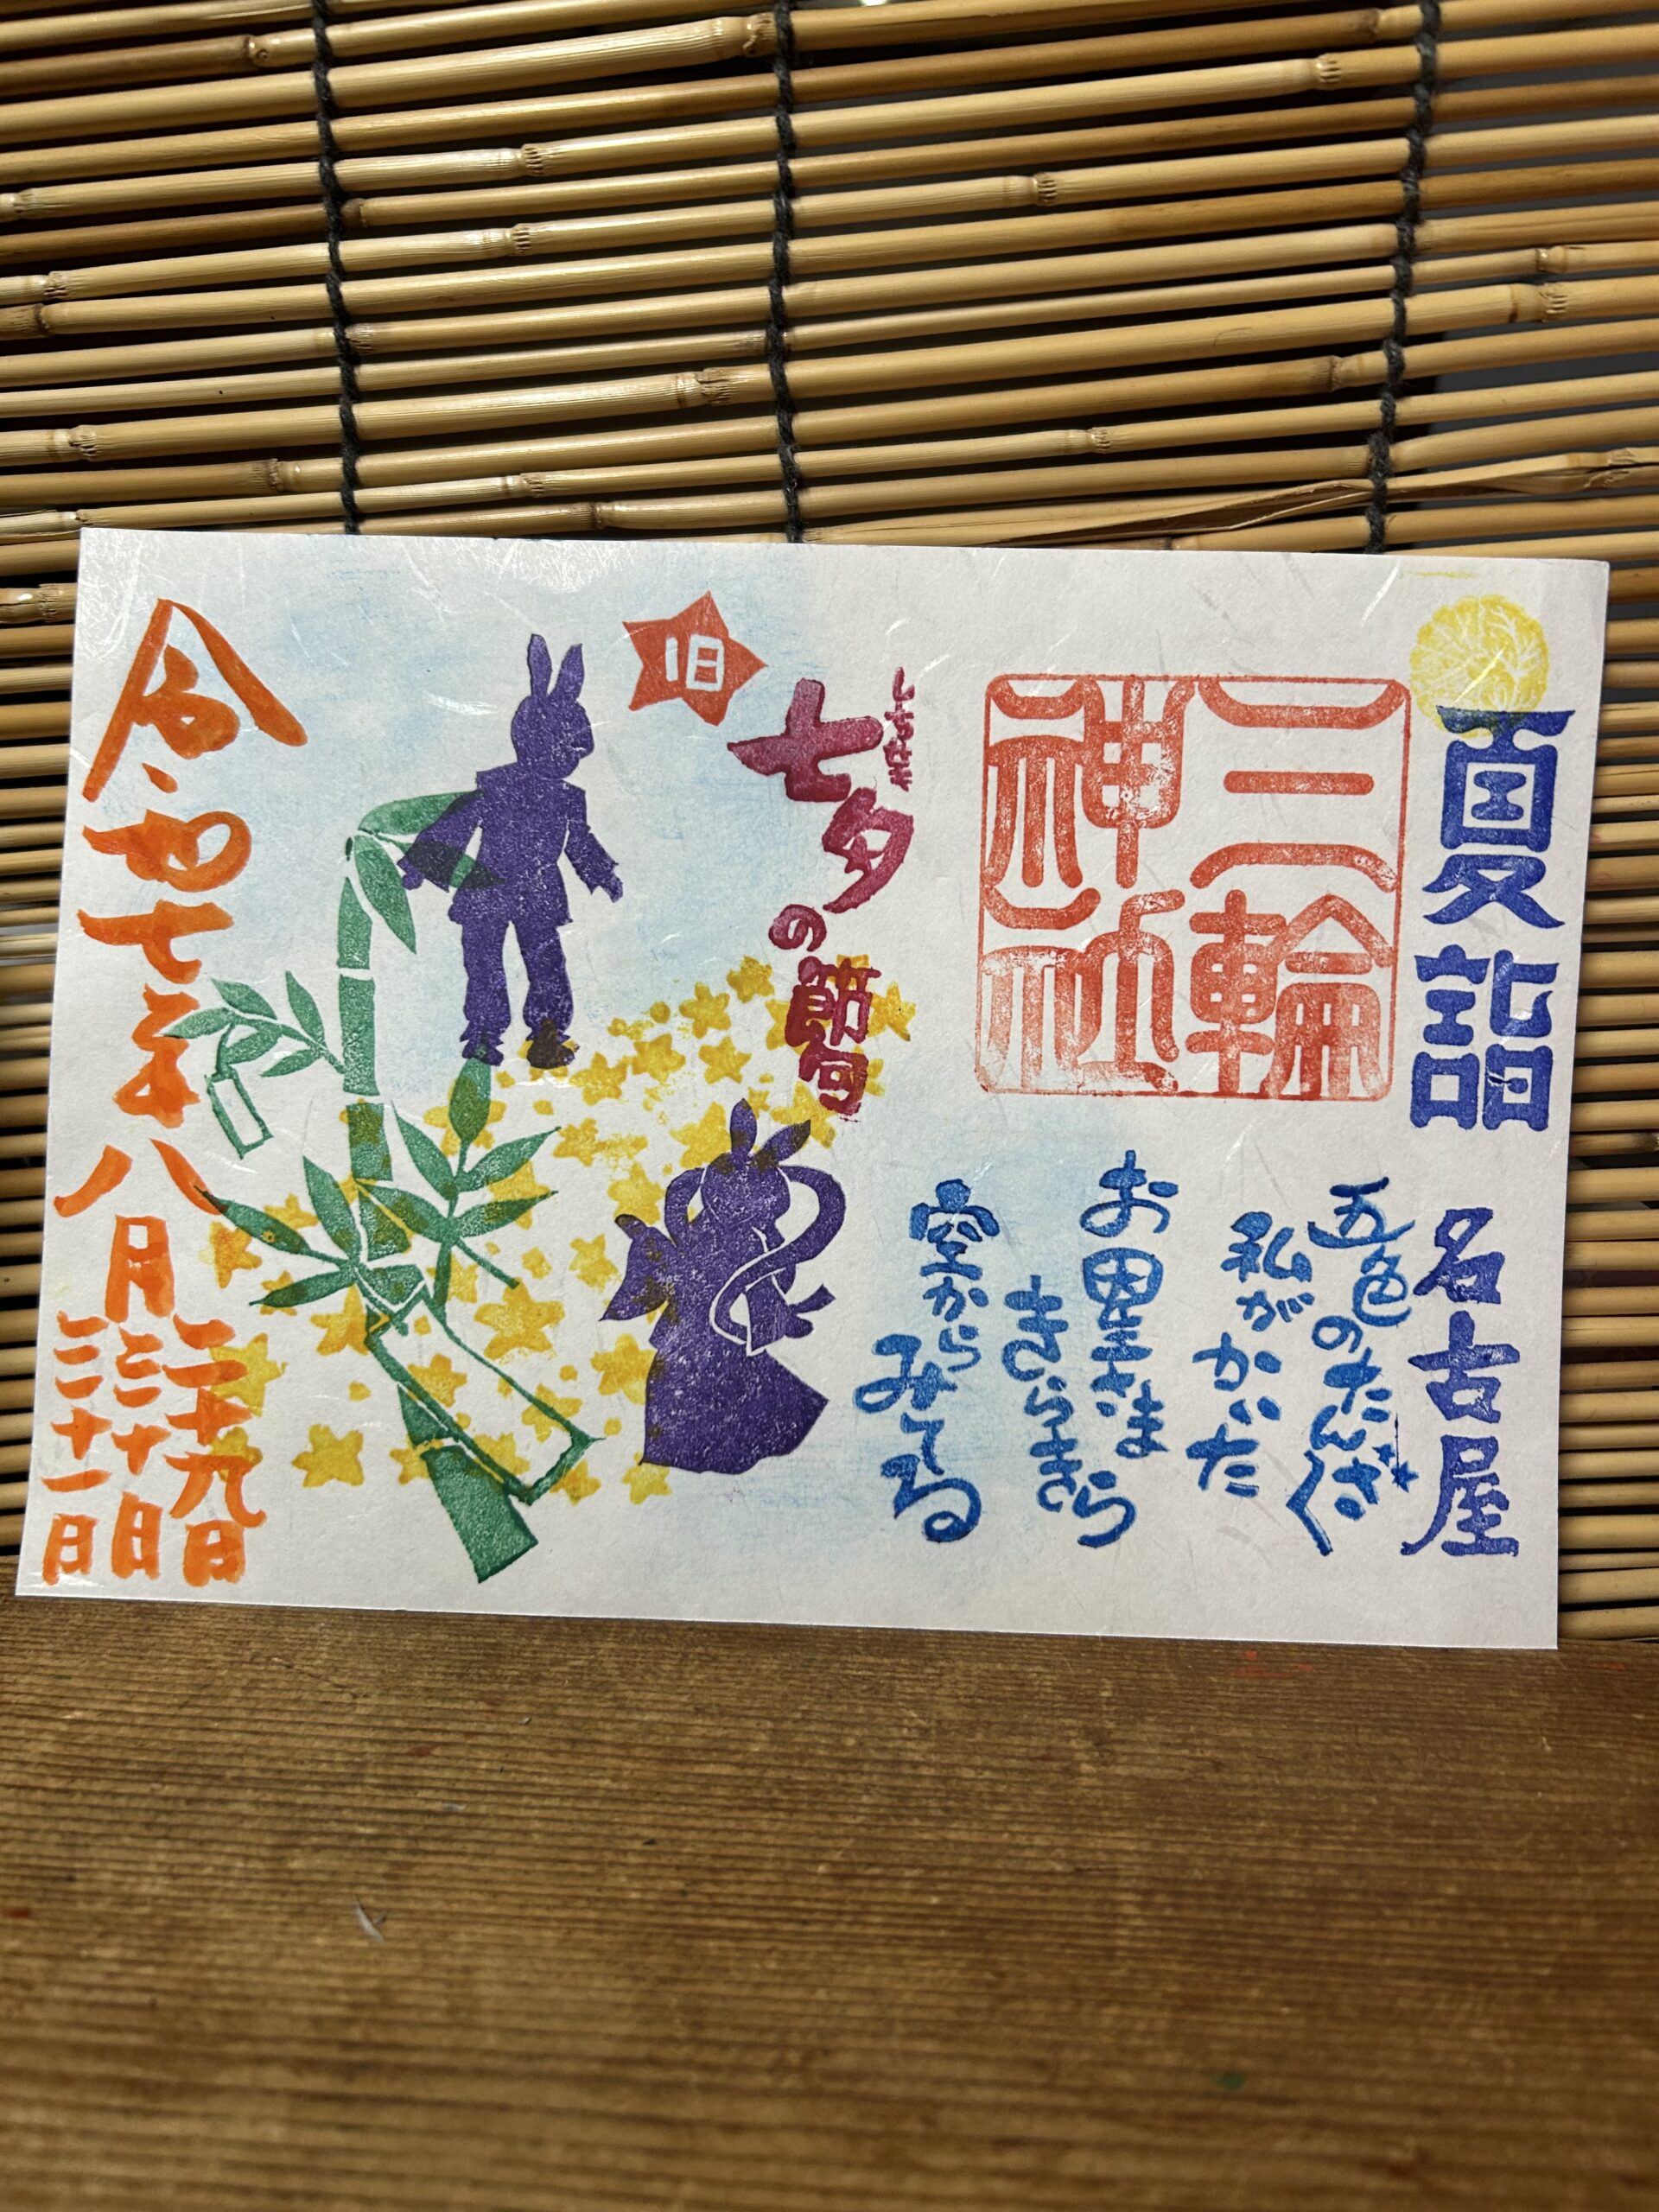 夏詣
名古屋
三輪
神社
五色のたんざく
私がかいた
お星さま
きらきら
空から
みてる
旧
しちせき
七夕の節句
令和七年八月
二十九日
三十日
三十一日